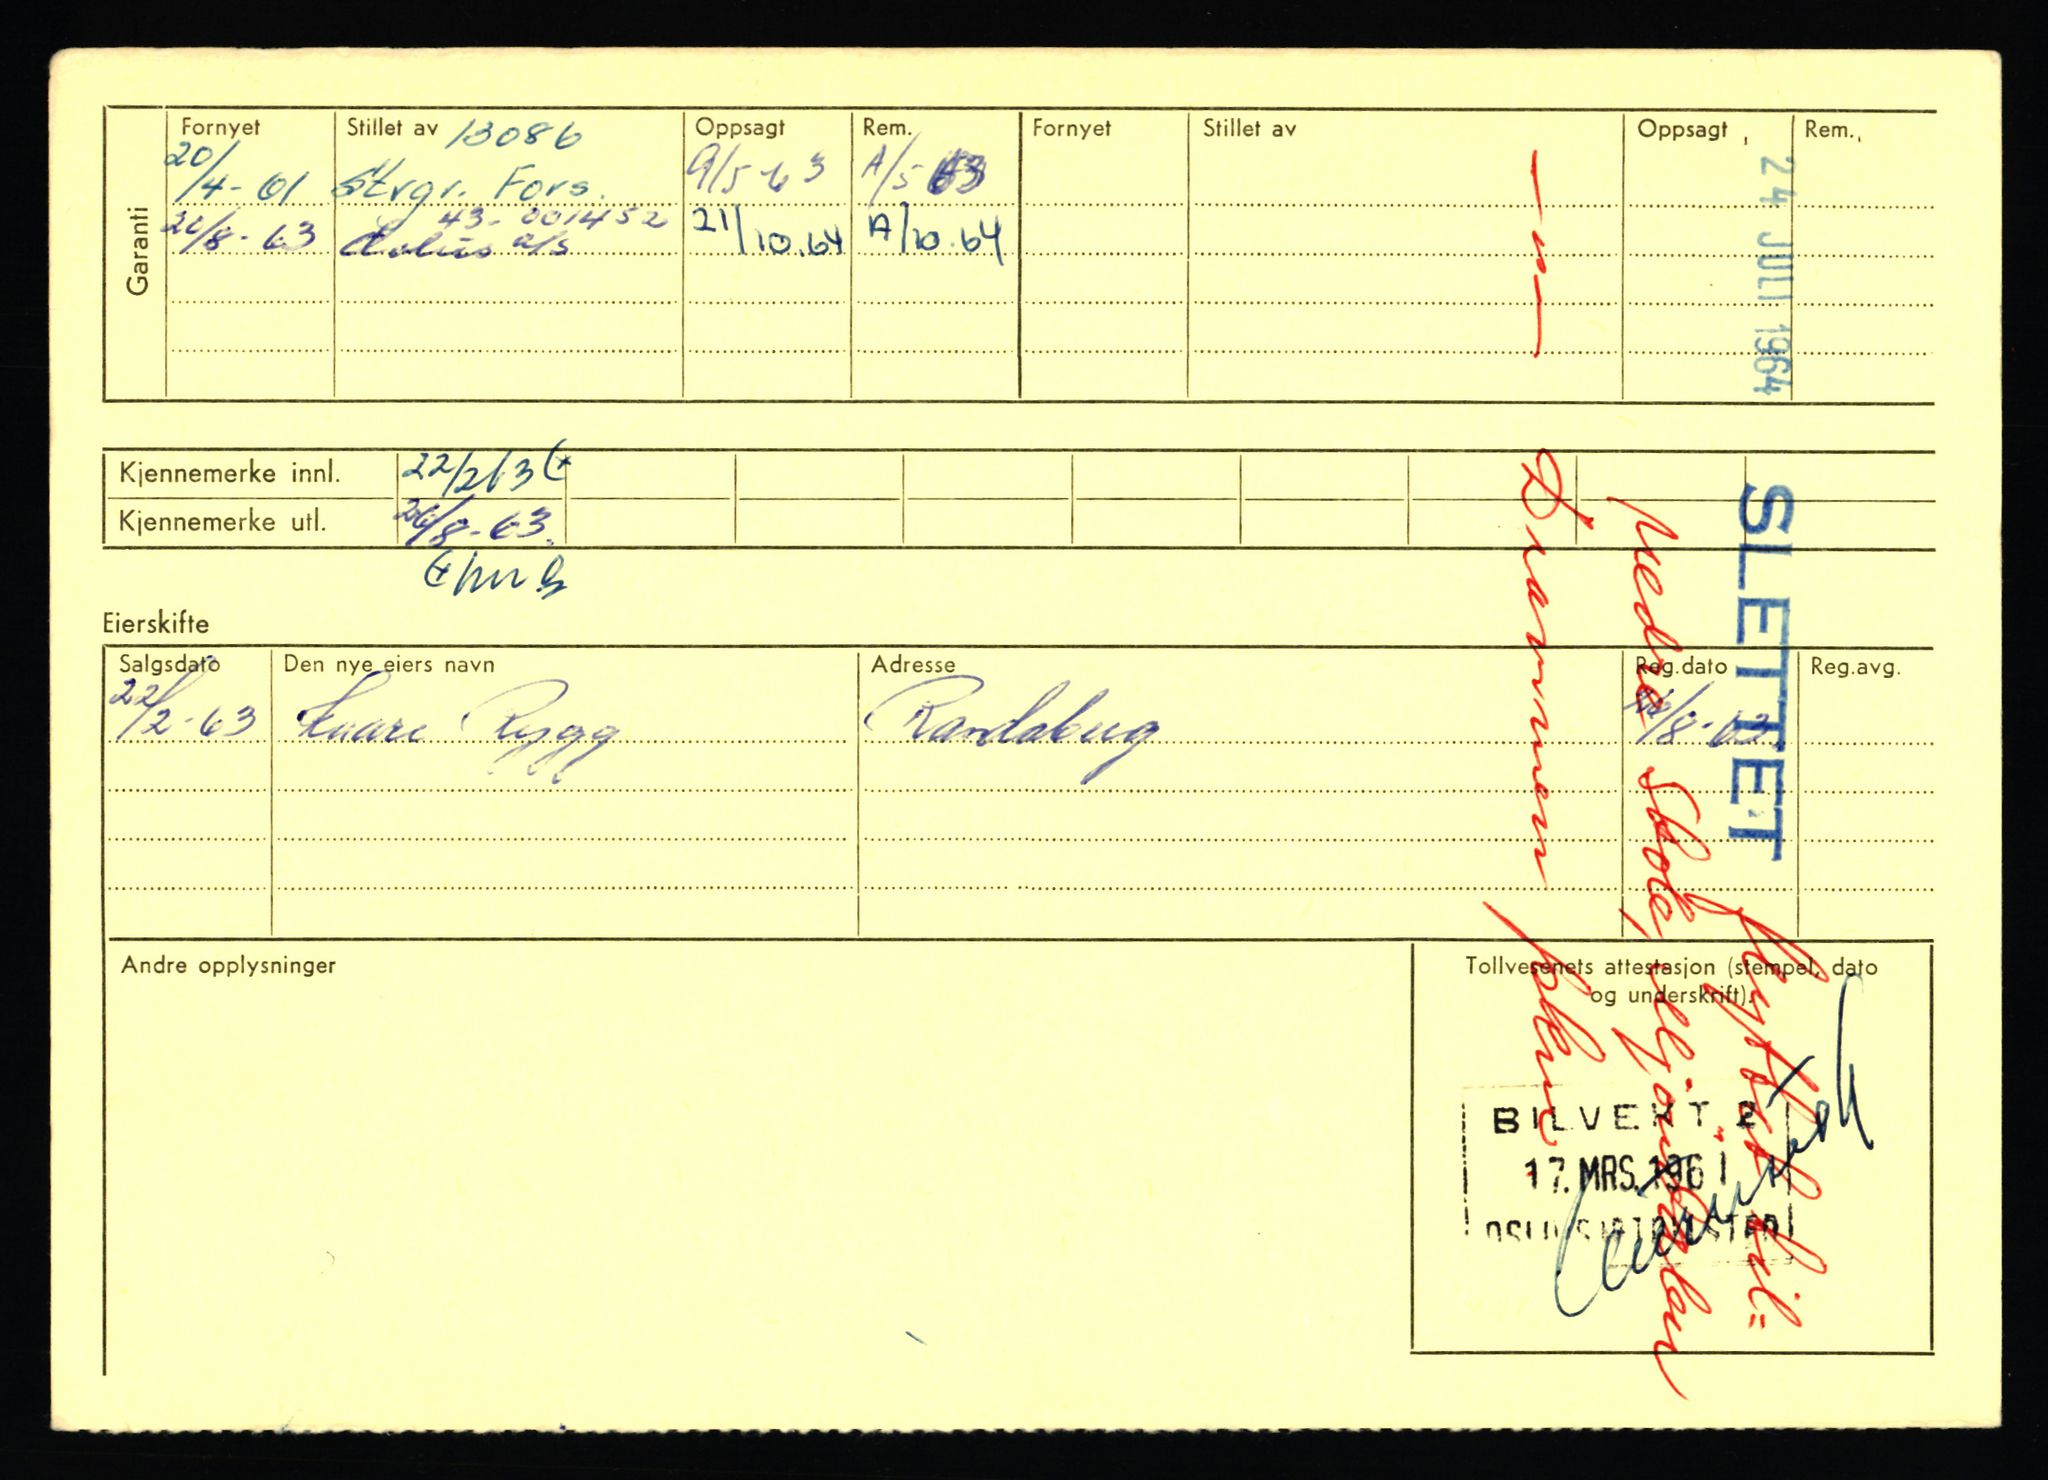 Garanti
Fornyet Stillet av 13086 Oppsagt Rem. Fornyet Stillet av Oppsagt Rem.
20/4-61 Strgr. Fors. 9/5-63 A/5 63
43-001452
20/8-63 a/s 21/10.64 A/10.64
24 JULI 1964
Kjennemerke innl. 22/263
Kjennemerke utl. 26/8-63.
SLETTET
Eierskifte
Salgsdato Den nye eiers navn Adresse Reg.dato Reg.avg.
22/2-63 Kaare Rygg Randaberg /8-63
Andre opplysninger
Tollvesenets attestasjon (stempel, dato
og underskrift).
BILVEKT 2
17. MRS. 1961
flyttet til:
nedre Skole,
Drammen